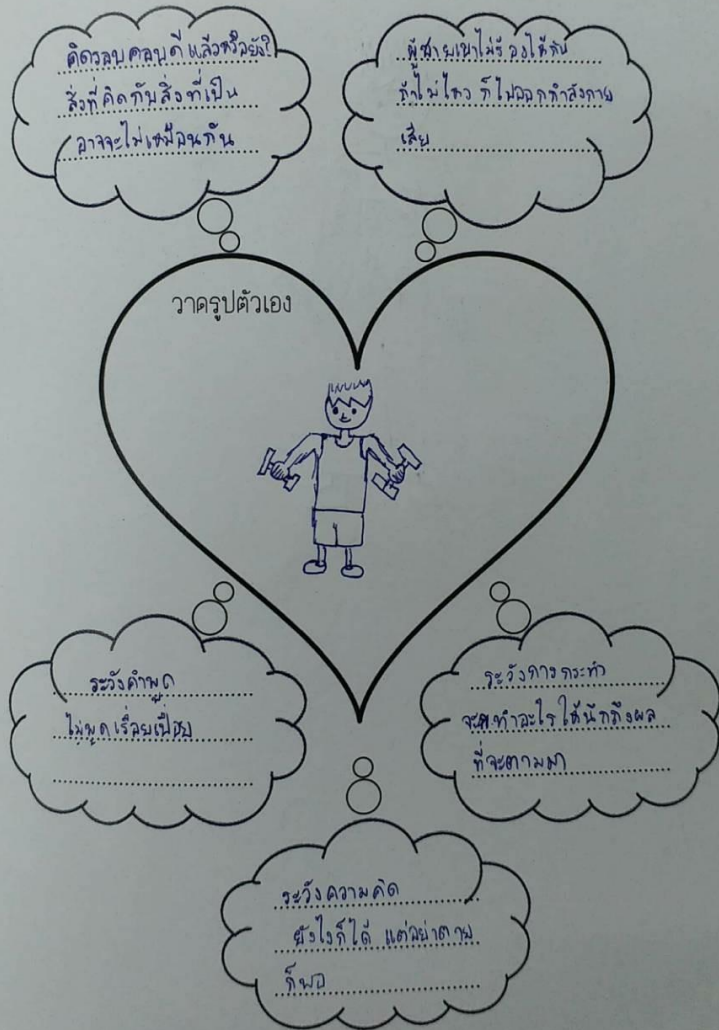 คิดรอบคอบดีแล้วหรือยัง?
สิ่งที่คิดกับสิ่งที่เป็น
อาจจะไม่เหมือนกัน
ผู้ชายเขาไม่ร้องไห้กัน
ถ้าไม่ไหว ก็ไปออกกำลังกาย
เสีย
วาดรูปตัวเอง
ระวังคำพูด
ไม่พูดเรื่อยเปื่อย
ระวังการกระทำ
จะทำอะไรให้นึกถึงผล
ที่จะตามมา
ระวังความคิด
ยังไงก็ได้ แต่อย่าตาย
ก็พอ